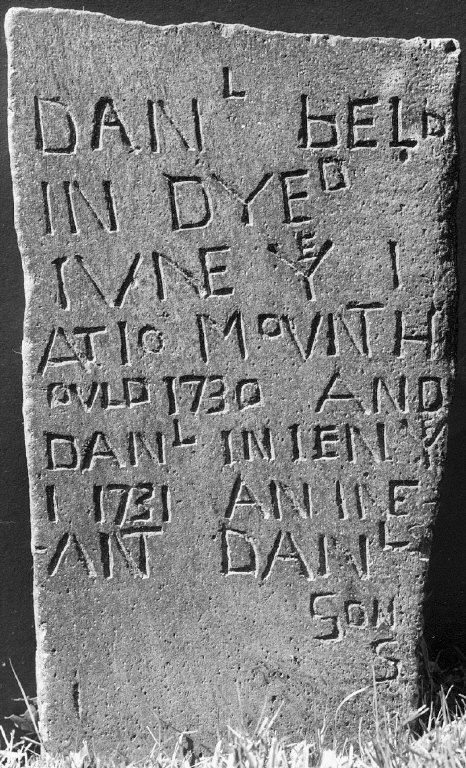 DANᴸ BELD
IN DYEᴰ
IVNE Yᴱ 1
AT 10 MOVNTH
OVLD 1730 AND
DANᴸ IN IENʸ
1 1731 AN INE
ANT DANᴸ
SON
S